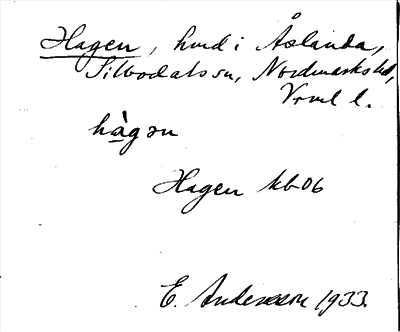 Hagen, hmd i Åslanda,
Silbodals sn, Nordmarks hd,
Vrml l.
hàgən
Hagen kb 06
E. Andersson 1933.